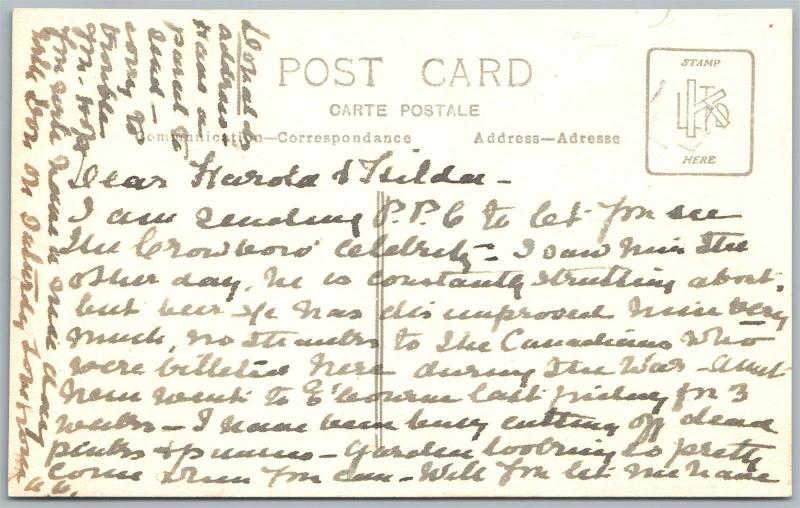 POST CARD
CARTE POSTALE
Communication—Correspondance
Address—Adresse
STAMP
HERE
Dear Harold & Hilda —
I am sending P.P.C to let you see
The Crowboro' Celebrity — I saw him the
other day, he is constantly strutting about,
but beer He has disimproved him very
much, no thanks to The Canadians who
were billeted here during the War — Aunt
went to E'bourne last friday for 3
weeks — I have been busy cutting off dead
pinks & — Garden looking so pretty
Come when you can — Will you let me have
address
Have a
parcel to
send —
sorry to
trouble
you